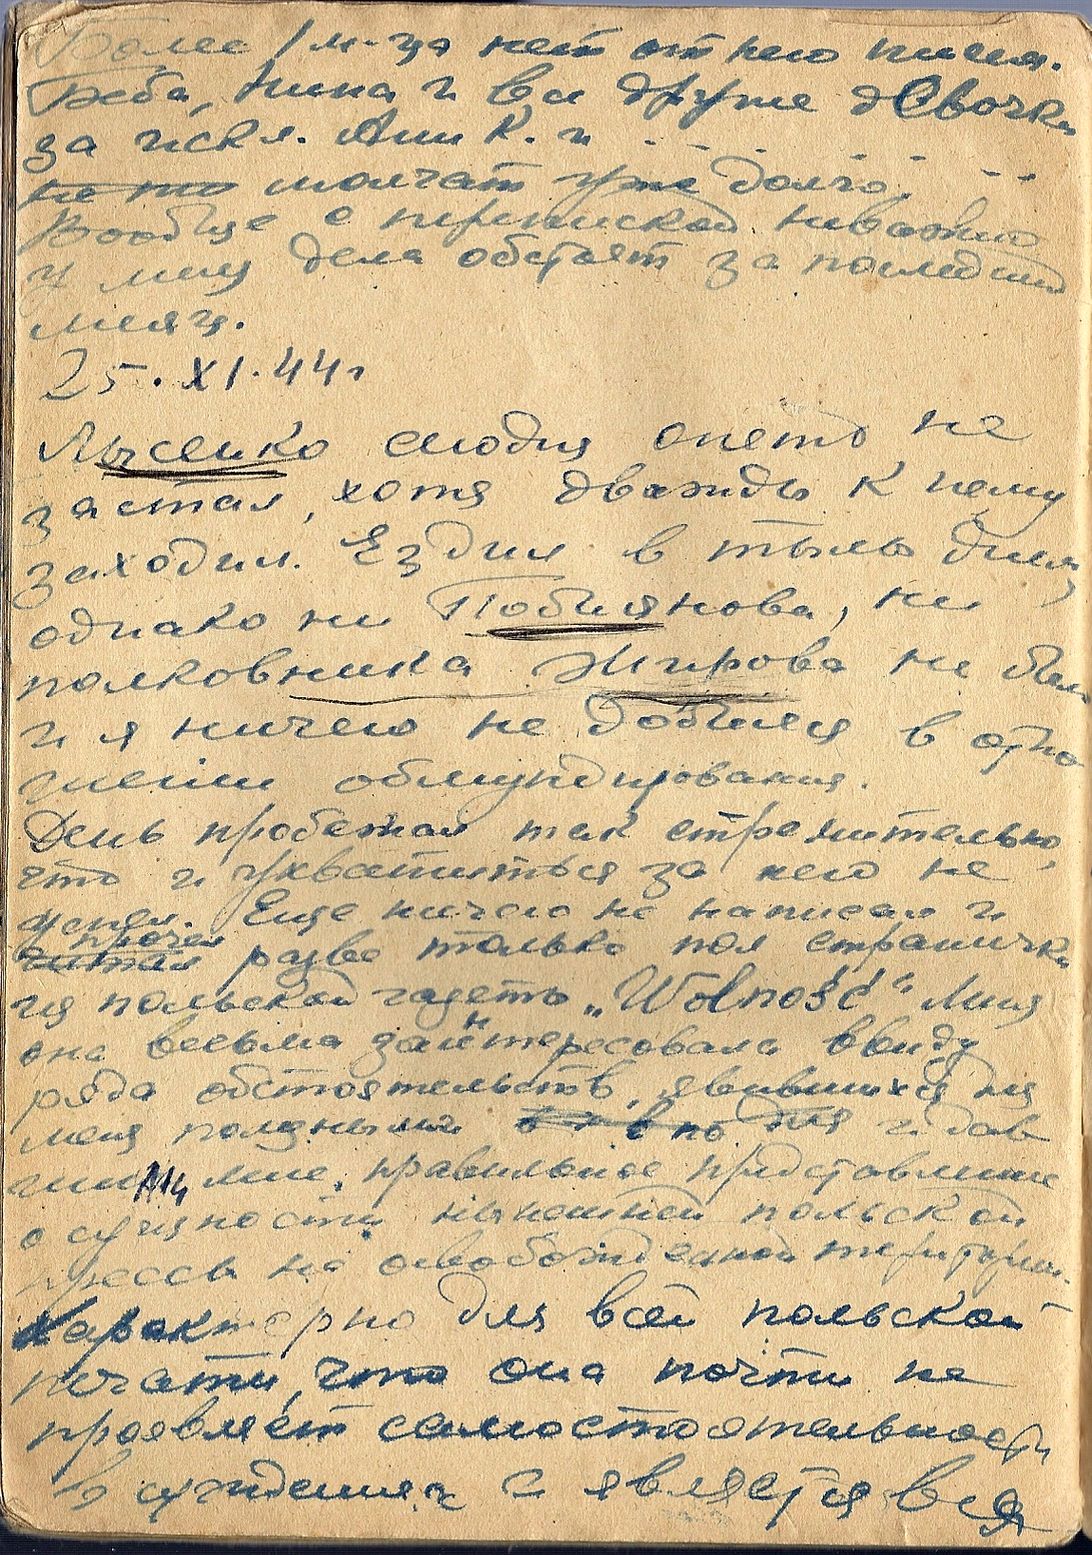 Более 1 м-ца нет от него писем.
Беба, Нина и все другие девочки
за искл. Ани К. и . . . . . .
не то молчат уже долго.
Вообще с перепиской неважно
у меня дела обстоят за последний
месяц.
25.XI.44г
Лысенко сегодня опять не
застал, хотя дважды к нему
заходил. Ездил в тылы дивизии,
однако ни Побиянова, ни
полковника Жирова не было
и я ничего не добился в отно
шении обмундирования.
День пробежал так стремительно,
что и ухватиться за него не
успел. Еще ничего не написал и
прочел
читал разве только пол странички
из польской газеты „Wolność“ Меня
она весьма заинтересовала ввиду
ряда обстоятельств, явившихся для
меня полезными и дав
шими мне правильное представление
о сущности нынешней польской
прессы на освобожденной территории.
Характерно для всей польской
печати, что она почти не
проявляет самостоятельности
в суждениях и является вся